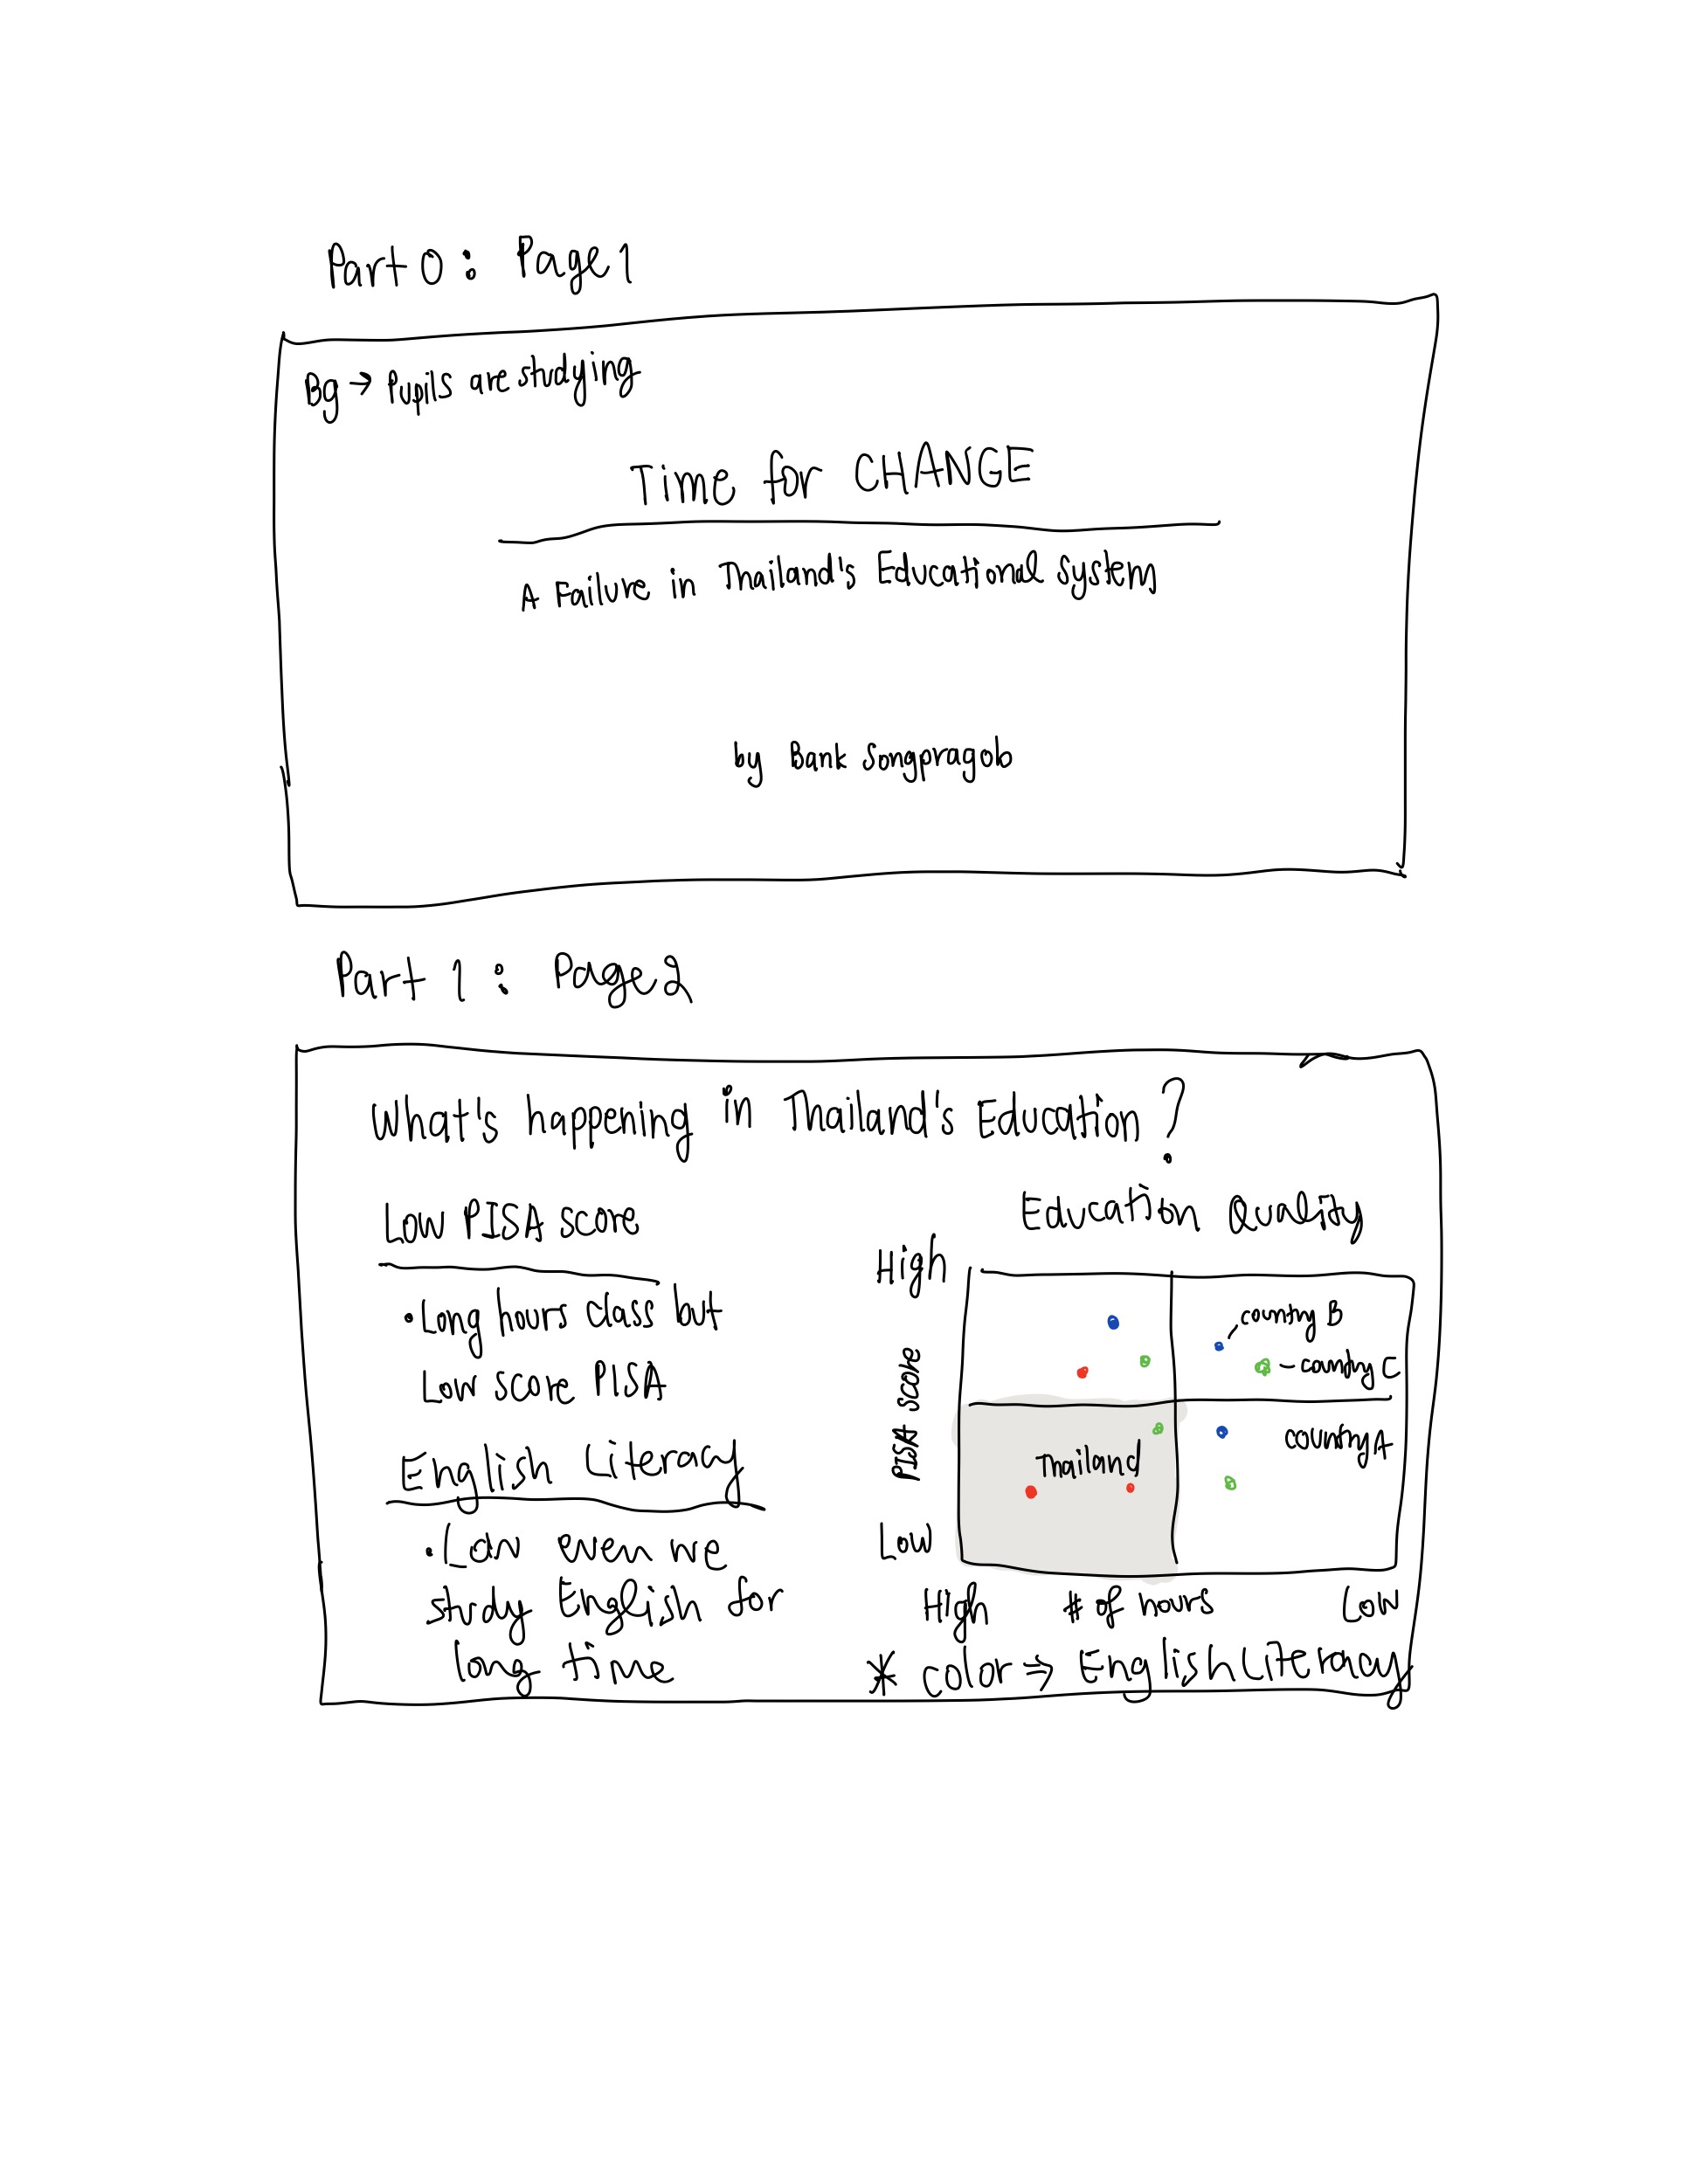 Part 0 : Page 1
Bg → Pupils are studying
Time for CHANGE
A Failure in Thailand's Educational System
by Bank Songpragob
Part 1 : Page 2
What's happening in Thailand's Education ?
Low PISA score
• Long hours class but
Low score PISA
English Literacy
• Low even we
study English for
long time
Education Quality
High
PISA score
Low
country B
country C
Thailand
country A
High # of hours Low
* color ⇒ English Literacy